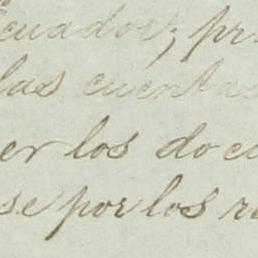 Ecuador; pr
las cuentas
er los docu
se por los re